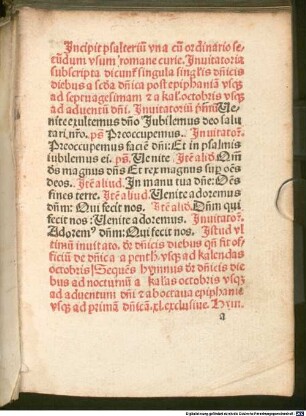 Incipit psalteriū vna cū ordinario se-
cūdum vsum romane curie. Inuitatoria
subscripta dicunt͛ singula singl'is dn̄icis
diebus a scḋa dn̄ica post epiphaniā vsq͛
ad septuagesimam ⁊ a kal'. octobris vsq͛
ad aduentū dn̄i. Inuitatoriū pͥmū Ve-
nite exultemus dn̄o Iubilemus deo salu
tari.nr̄o. ps̄ Preoccupemus. Inuitator͛.
Preoccupemus faciē dn̄i: Et in psalmis
iubilemus ei. ps̄. Uenite. Itē aliḋ. Qm̄
ds̄ magnus dn̄s Et rex magnus suꝑ oēs
deos. Itē aliud. In manu tua dn̄e: Oēs
fines terre. Itē aliud. Uenite adoremus
dn̄m: Qui fecit nos. Itē aliḋ. Dn̄m qui
fecit nos: Uenite adoremus. Inuitator͛.
Adorem⁹ dn̄m: Qui fecit nos. Istud vl
timū inuitato. ī dn̄icis diebus qn̄ fit of-
ficiū de dn̄ica a penth. vsq͛ ad kalendas
octobris Sequēs hymnus ī dn̄icis die
bus ad nocturnū a kal'as octobris vsq͛
ad aduentum dn̄i ⁊ ab octaua epiphanie
vsq͛ ad primā dn̄icā.xl.exclusiue. Hym.
a